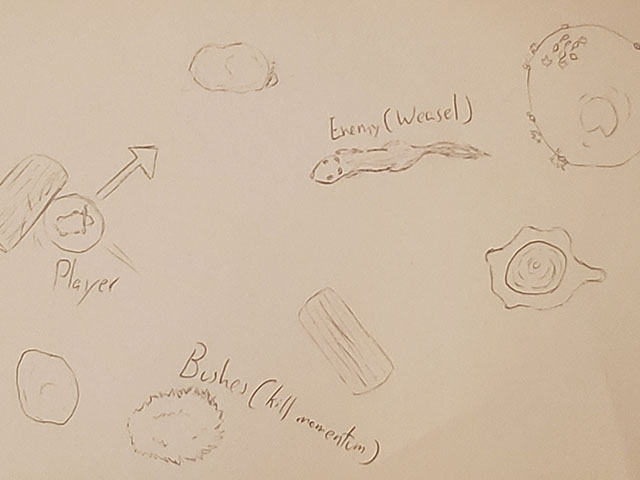 Enemy (Weasel)
Player
Bushes (kill momentum)